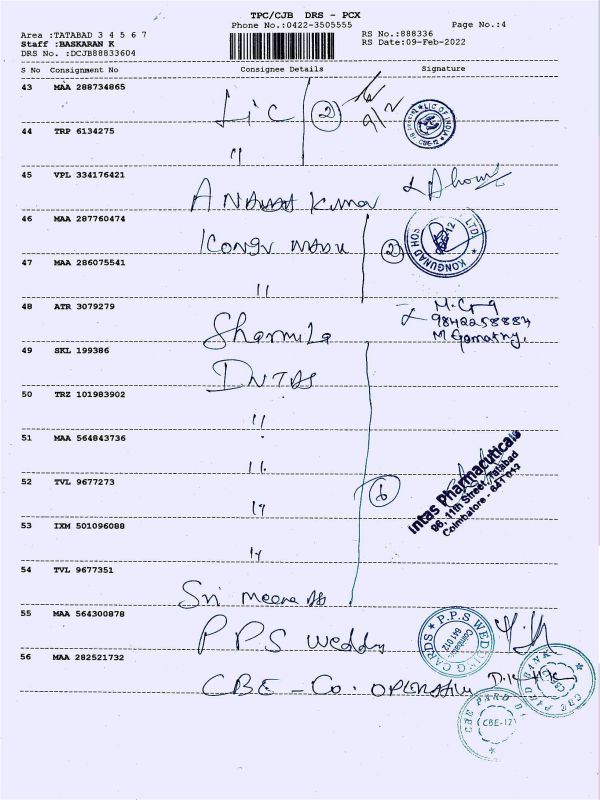 TPC/CJB DRS - PCX
Phone No.:0422-3505555
Page No.:4
Area :TATABAD 3 4 5 6 7
RS No.:888336
Staff :BASKARAN K
RS Date:09-Feb-2022
DRS No. :DCJB88833604
S No Consignment No Consignee Details Signature
43 MAA 288734865
LIC 2 9/2
LIC OF INDIA CBE-12
44 TRP 6134275
"
45 VPL 334176421
Kumar
46 MAA 287760474
KONGU NADU 2
KONGUNAD HOS LTD CBE-12
47 MAA 286075541
"
48 ATR 3079279
Sharmila
9842258884
M Gomathy.
49 SKL 199386
INTAS
50 TRZ 101983902
"
51 MAA 564843736
"
52 TVL 9677273
" 6
Intas Pharmaceuticals
96, 11th Street, Tatabad
Coimbatore - 641 012
53 IXM 501096088
"
54 TVL 9677351
Sri Meena
55 MAA 564300878
PPS Wedding
P.P.S WEDDING CARDS 641 012
56 MAA 282521732
CBE - CO. OPERATIVE
CBE PARD BANK
CBE PARD B CBE-12